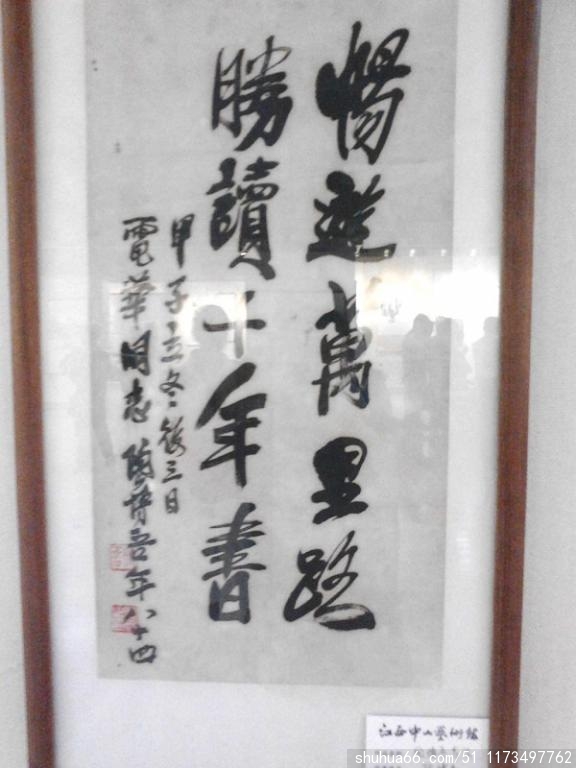 暢遊萬里路
勝讀千年書
甲子立冬後三日
電華同志 陶博吾年八十四
江西中山藝術館
shuhua66.com/51_1173497762